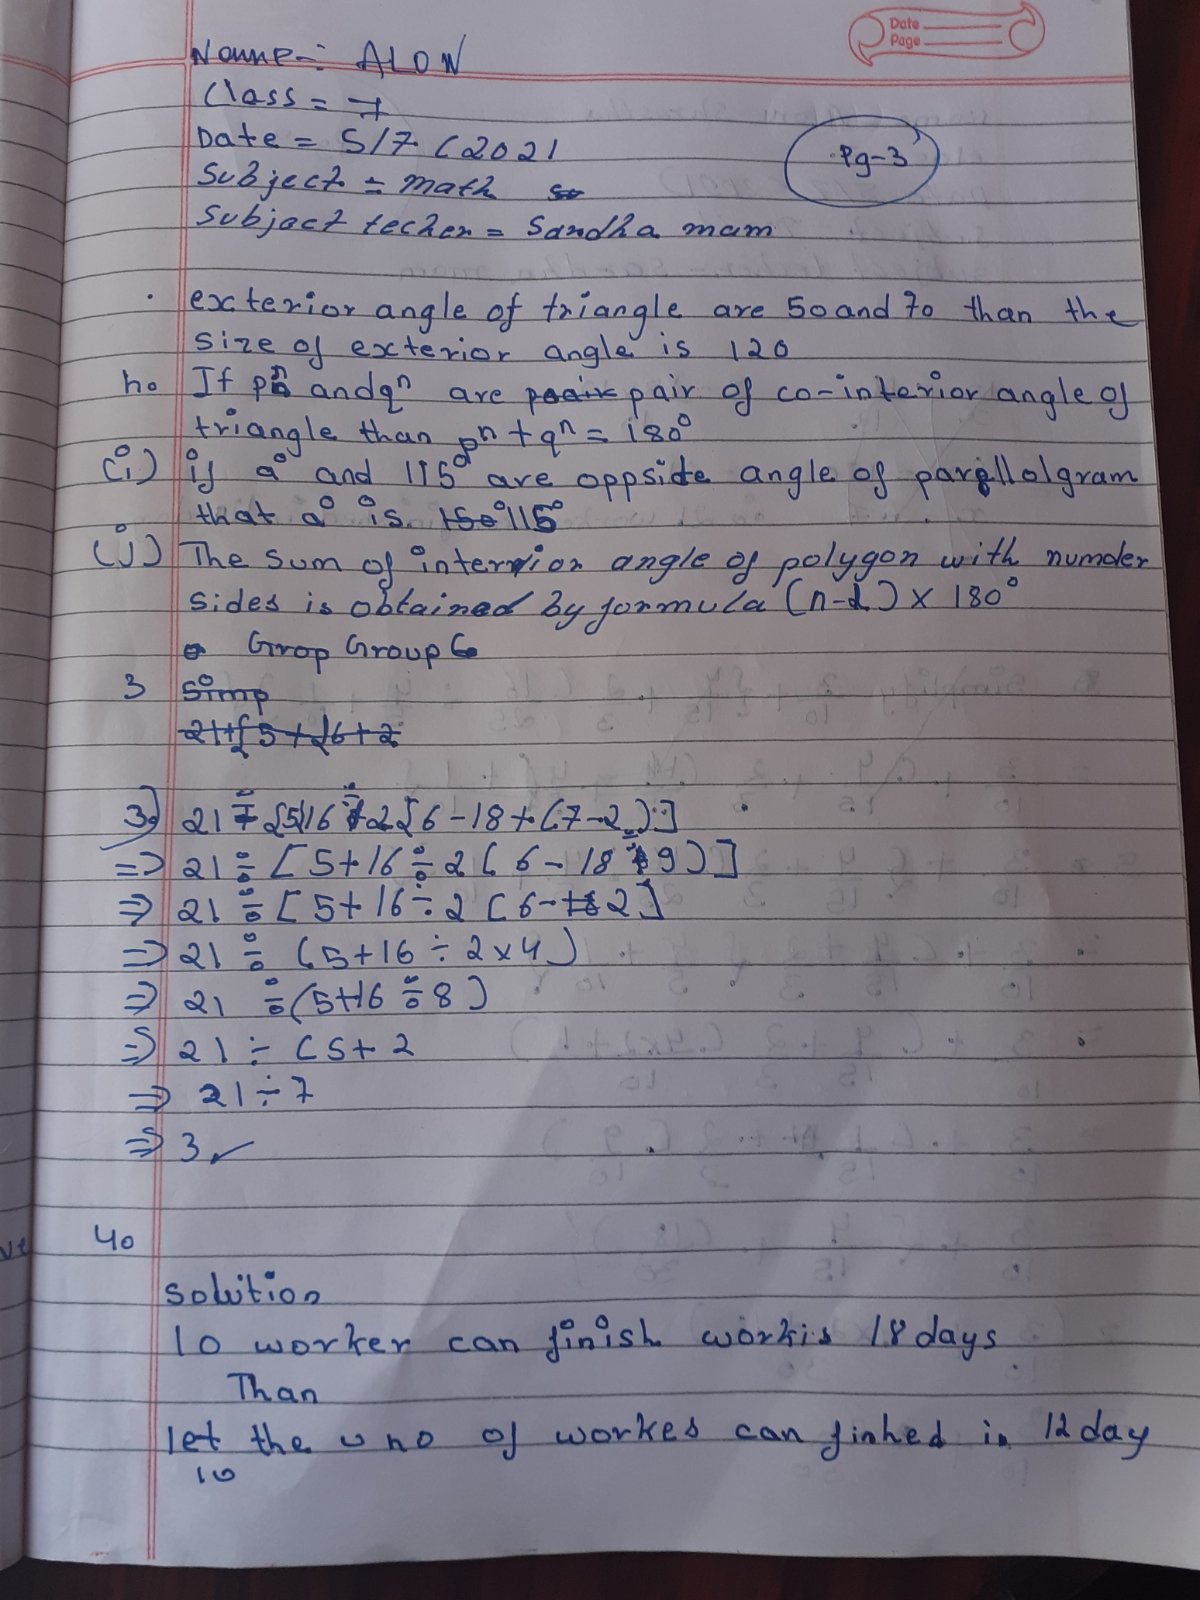 Date
Page
Name-: ALON
Class = 7
Date = 5/7/2021
Pg-3
Subject = math
Subject techer = Sandha mam
exterior angle of triangle are 50 and 70 than the
size of exterior angle is 120
h. If pⁿ and qⁿ are pair of co-interior angle of
triangle than pⁿ + qⁿ = 180°
(i) if a° and 115° are oppside angle of parellolgram
that a° is 115°
(j) The sum of interior angle of polygon with numder
sides is obtained by formula (n-2) x 180°
Grop Group C
3 Simp
21+[5+[6+2
3) 21 ÷ [5+16 ÷ 2[6-18+(7-2)]
=> 21 ÷ [5+16 ÷ 2 ( 6 - 18 ÷ 9)]
=> 21 ÷ [5+16 ÷ 2 [6-2]
=> 21 ÷ (5+16 ÷ 2x4)
=> 21 ÷ (5+16 ÷ 8)
=> 21 ÷ (5+ 2
=> 21 ÷ 7
=> 3 ✓
4.
Solution
10 worker can finish workis 18 days
Than
let the no of workes can finhed in 12 day
10